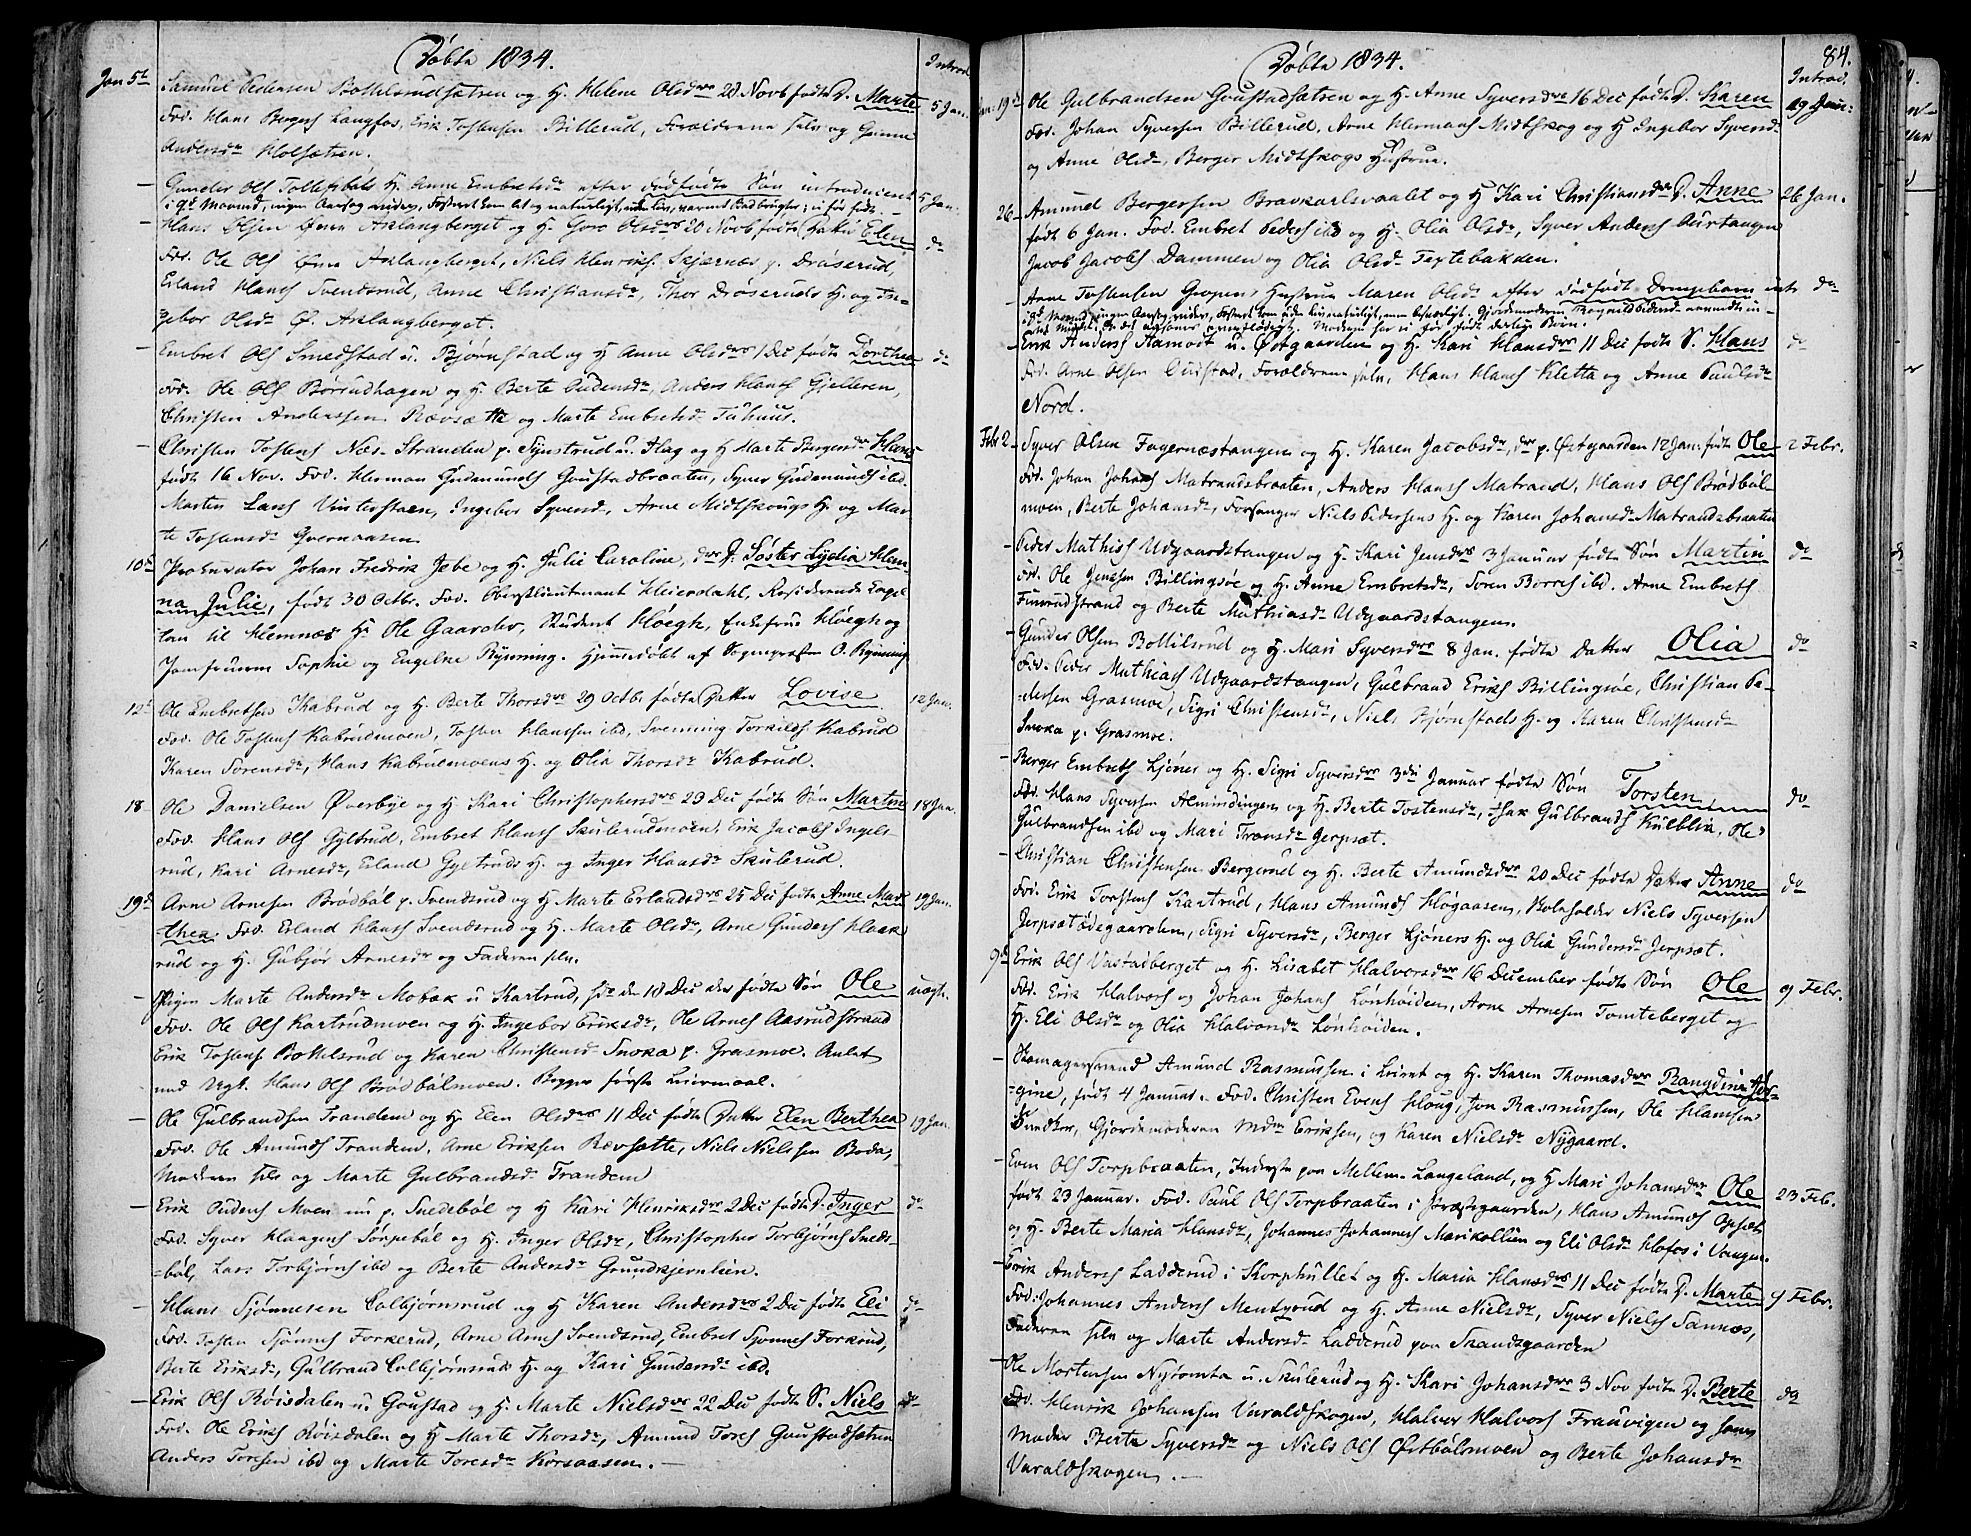 Döbte 1834.
Introd.
Jan 5te Samuel Pedersen Bottelsrudsætren og H. Helene Olsdrs 28 Novb fødte D. Marte 5 Jan.
Fad. Hans Bergers Langfos, Erik Tostensen Billerud, Forældrene selv og Gunne
Andersdr Holsætren.
Gunder Ols Tollefsböls H. Anne Embretsdr efter dødfødte Søn introduceret 5 Jan.
Hans Olsen Øvre Aklangberget og H. Goro Olsdrs 20 Novb fødte Datter Elen do
Fad. Ole Ols Øvre Aklangberget, Niels Henriks Skjærnæs p. Dröserud,
Erland Hans Svendsrud, Anne Christiansdr, Thor Dröseruds H. og In-
gebor Olsdr Ø. Aklangberget.
Embret Ols Smedstad u. Bjørnstad og H Anne Olsdrs 1 Dec fødte Dorthea do
Fad. Ole Ols Börrudhagen og H. Berte Audensdr, Anders Hans Gjelleren,
Christen Anderssen Rævsætte og Marte Embretsdr
Christen Tostens Næs-Stranden p. Synstrud u. Hag og H Marte Bergersdrs Hans
født 16 Nov. Fad. Herman Gudmunds Goustadbraaten, Syver Gudmunds ibd.
Morten Lars Vinterstuen, Ingebor Syversdr, Arne Midtskougs H. og Mar-
te Tostensdr Qvernaasen
10de Prokurator Johan Fredrik Jebe og H. Julie Caroline, drs D. Söster Lydia Han-
na Julie, født 30 Octbr. Fad. Oberstlieutnant Heierdahl, Residerende Capel-
lan til Hemnæs Hr Ole Gaarder, Student Höegh, Enkefrue Höegh og
Jomfruerne Sophie og Engelke Rynning. Hjemmedöbt af Sognepræsten O. Rynning
12te Ole Embretsen Kabrud og H. Berte Thorsdrs 29 Octbr fødte Datter Lovise 12 Jan.
Fad. Ole Tostens Kabrudmoen, Tosten Hanssen ibd, Svenning Torkilds Kabrud
Karen Sorensdr, Hans Kabrudmoens H. og Olia Thorsdr Kabrud.
18 Ole Danielsen Överbye og H. Kari Christophersdrs 29 Dec fødte Søn Martin 18 Jan.
Fad. Hans Ols Gyltrud, Embret Hans Skulerudmoen, Erik Jacobs Ingels-
rud, Kari Arnesdr, Erland Gyltruds H. og Inger Hansdr Skulerud.
19de Arne Arnesen Brødböl p. Svendsrud og H Marte Erlandsdrs 25 Dec fødte Anne Mar- 19 Jan.
thea. Fad. Erland Hans Svendsrud og H. Marte Olsdr, Arne Gunders Haak-
rud og H. Gubjør Arnesdr og Faderen selv.
Pigen Marte Andersdr Mobæk u Kartrud, den 18 Dec fødte Søn Ole uægte.
Fad. Ole Ols Kartrudmoen og H. Ingebor Eriksdr, Ole Arnes Aasrudstrand
Erik Tostens Bottelsrud og Karen Christensdr Snoka p. Grasmoe. Avlet
med Ugk. Hans Ols Brödbölmoen. Begges første Leiermaal.
Ole Gulbrandsen Trandem og H. Elen Olsdrs 11 Dec fødte Datter Elen Berthea 19 Jan.
Fad. Ole Amunds Trandem, Arne Eriksen Rævsætte, Niels Nielssen Boda,
Moderen selv og Marte Gulbrandsdr Trandem
Erik Audens Moen nu p. Snedeböl og H Kari Henriksdrs 2 Dec fødte D. Inger do
Fad. Syver Haagens Sørpeböl og H. Inger Olsdr, Christopher Torbjørns Snede-
böl, Lars Torbjørns ibd og Berte Andersdr Grundkjernlien.
Hans Sjönnesen Colbjørnsrud og H Karen Andersdrs 2 Dec fødte Eli do
Fad. Tosten Sjönnes Forkerud, Arne Arnes Svendsrud, Embret Sjonnes Forkrud,
Berte Eriksdr, Gulbrand Colbjörnsruds H. og Kari Gundersdr ibd.
Erik Ols Röisdalen u. Goustad og H. Marte Nielsdrs 22 Dec fødte S. Niels do
Fad. Ole Eriks Röisdalen og H Marte Thorsdr, Amund Tores Goustadsætren
Anders Toresen ibd og Marte Toresdr Korsaasen.
Döbte 1834.
84.
Introd.
Jan: 19de Ole Gulbrandsen Goustadsætren og H. Anne Syversdrs 16 Dec fødte D. Karen 19 Jan:
Fad. Johan Syversen Billerud, Arne Hermans Midtskog og H Ingebor Syversdr
og Anne Olsdr, Berger Midtskogs Hustrue.
26 Amund Bergersen Bravkarlsvaalet og H Kari Christiansdrs D. Anne 26 Jan.
født 6 Jan. Fad. Embret Peders ibd og H. Olia Olsdr, Syver Anders Aurtangen
Jacob Jacobs Dammen og Olia Olsdr Teglebakken.
Arne Tostensen Gropens Hustrue Maren Olsdr efter dødfødt Drengebarn intr do
Erik Anders Aamodt u. Østgaarden og H. Kari Hansdrs 11 Dec fødte S. Hans do
Fad. Arne Olsen Aurstad, Forældrene selv, Hans Hans Kletta og Anne Paulsdr
Nord.
Febr 2 Syver Olsen Fagernæstangen og H. Karen Jacobsdr, drs p. Østgaarden 12 Jan. født Ole 2 Febr.
Fad. Johan Johans Matrandsbraaten, Anders Hans Matrand, Hans Ols Brödböl-
moen, Berte Johansdr, Forsanger Niels Pedersens H. og Karen Johansdr Matrandsbraaten
Peder Mathis Udgaardstangen og H. Kari Jensdrs 3 Januar fødte Søn Martin do
Fad. Ole Jenssen Billingsöe og H. Anne Embretsdr, Soren Borres ibd. Arne Embrets
Finsrudstrand og Berte Mathiasdr Udgaardstangen.
Gunder Olsen Bottilsrud og H. Mari Syversdrs 8 Jan. fødte Datter Olia do
Fad. Peder Mathias Udgaardstangen, Gulbrand Eriks Billingsöe, Christian Pe-
dersen Grasmoe, Sigri Christensdr, Niels Bjørnstads H. og Karen Christensdr
Snoka p. Grasmoe.
Berger Embrets Ljöner og H. Sigri Syversdrs 3die Januar fødte Søn Torsten do
Fad. Hans Syversen Almindingen og H. Berte Tostensdr, Isak Gulbrands Kulblia, Ole
Gulbrandsen ibd og Mari Transdr Jerpset.
Christian Christensen Bergerud og H. Berte Amundsdrs 20 Dec fødte Datter Anne do
Fad. Erik Torstens Kartrud, Hans Amunds Högaasen, Skoleholder Niels Syversen
Jerpsætödegaarden, Sigri Syversdr, Berger Ljöners H. og Olia Gundersdr Jerpsæt.
9de Erik Ols Vastadberget og H. Lisabet Halvorsdrs 16 December fødte Søn Ole 9 Febr.
Fad. Erik Halvors og Johan Johans Lönhöiden, Arne Arnesen Tomteberget og
H. Eli Olsdr og Olia Halvorsdr Lönhöiden.
Skomagersvend Amund Rasmussen i Leiret og H. Karen Thomasdrs Rangdine Geor-
gine, født 4 Januar. Fad. Christen Evens Houg, Jon Rasmussen, Ole Hansen
Snedker, Gjordemoderen Mdm Eriksen, og Karen Nielsdr Nygaard.
Even Ols Torpbraaten, Inderste paa Mellem-Langeland, og H Mari Johansdrs Ole 23 Feb.
født 23 Januar. Fad. Paul Ols Torpbraaten i Præstegaarden, Hans Amunds Opset
og H. Berte Maria Hansdr, Johannes Johannes Marikollien og Eli Olsdr Hofos i Vangen.
Erik Anders Ladderud i Skorphullet og H. Maria Hansdrs 11 Dec fødte D. Marte 9 Febr.
Fad. Johannes Anders Mentzrud og H. Anne Nielsdr, Syver Niels Sannæs,
Faderen selv og Marte Andersdr Ladderud paa Skandsgaarden
Ole Mortensen Nytomta u. Skulerud og H. Kari Johansdrs 3 Nov fødte D. Berte do
Fad. Henrik Johansen Varaldskogen, Halvor Halvors Frauvigen og hans
Moder Berte Syversdr og Niels Ols Østbölsmoen og Berte Johansdr
Varaldskogen.